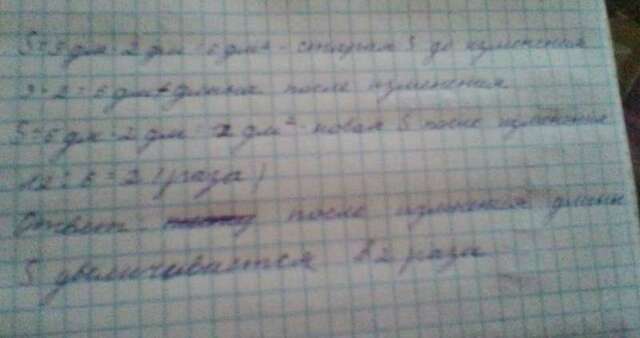 S=3 дм · 2 дм = 6 дм² - старая S до изменения
3·2=6 дм - длина после изменения
S=6 дм · 2 дм = 12 дм² - новая S после изменения
12:6=2 (раза)
Ответ: после изменения длины
S увеличивается в 2 раза